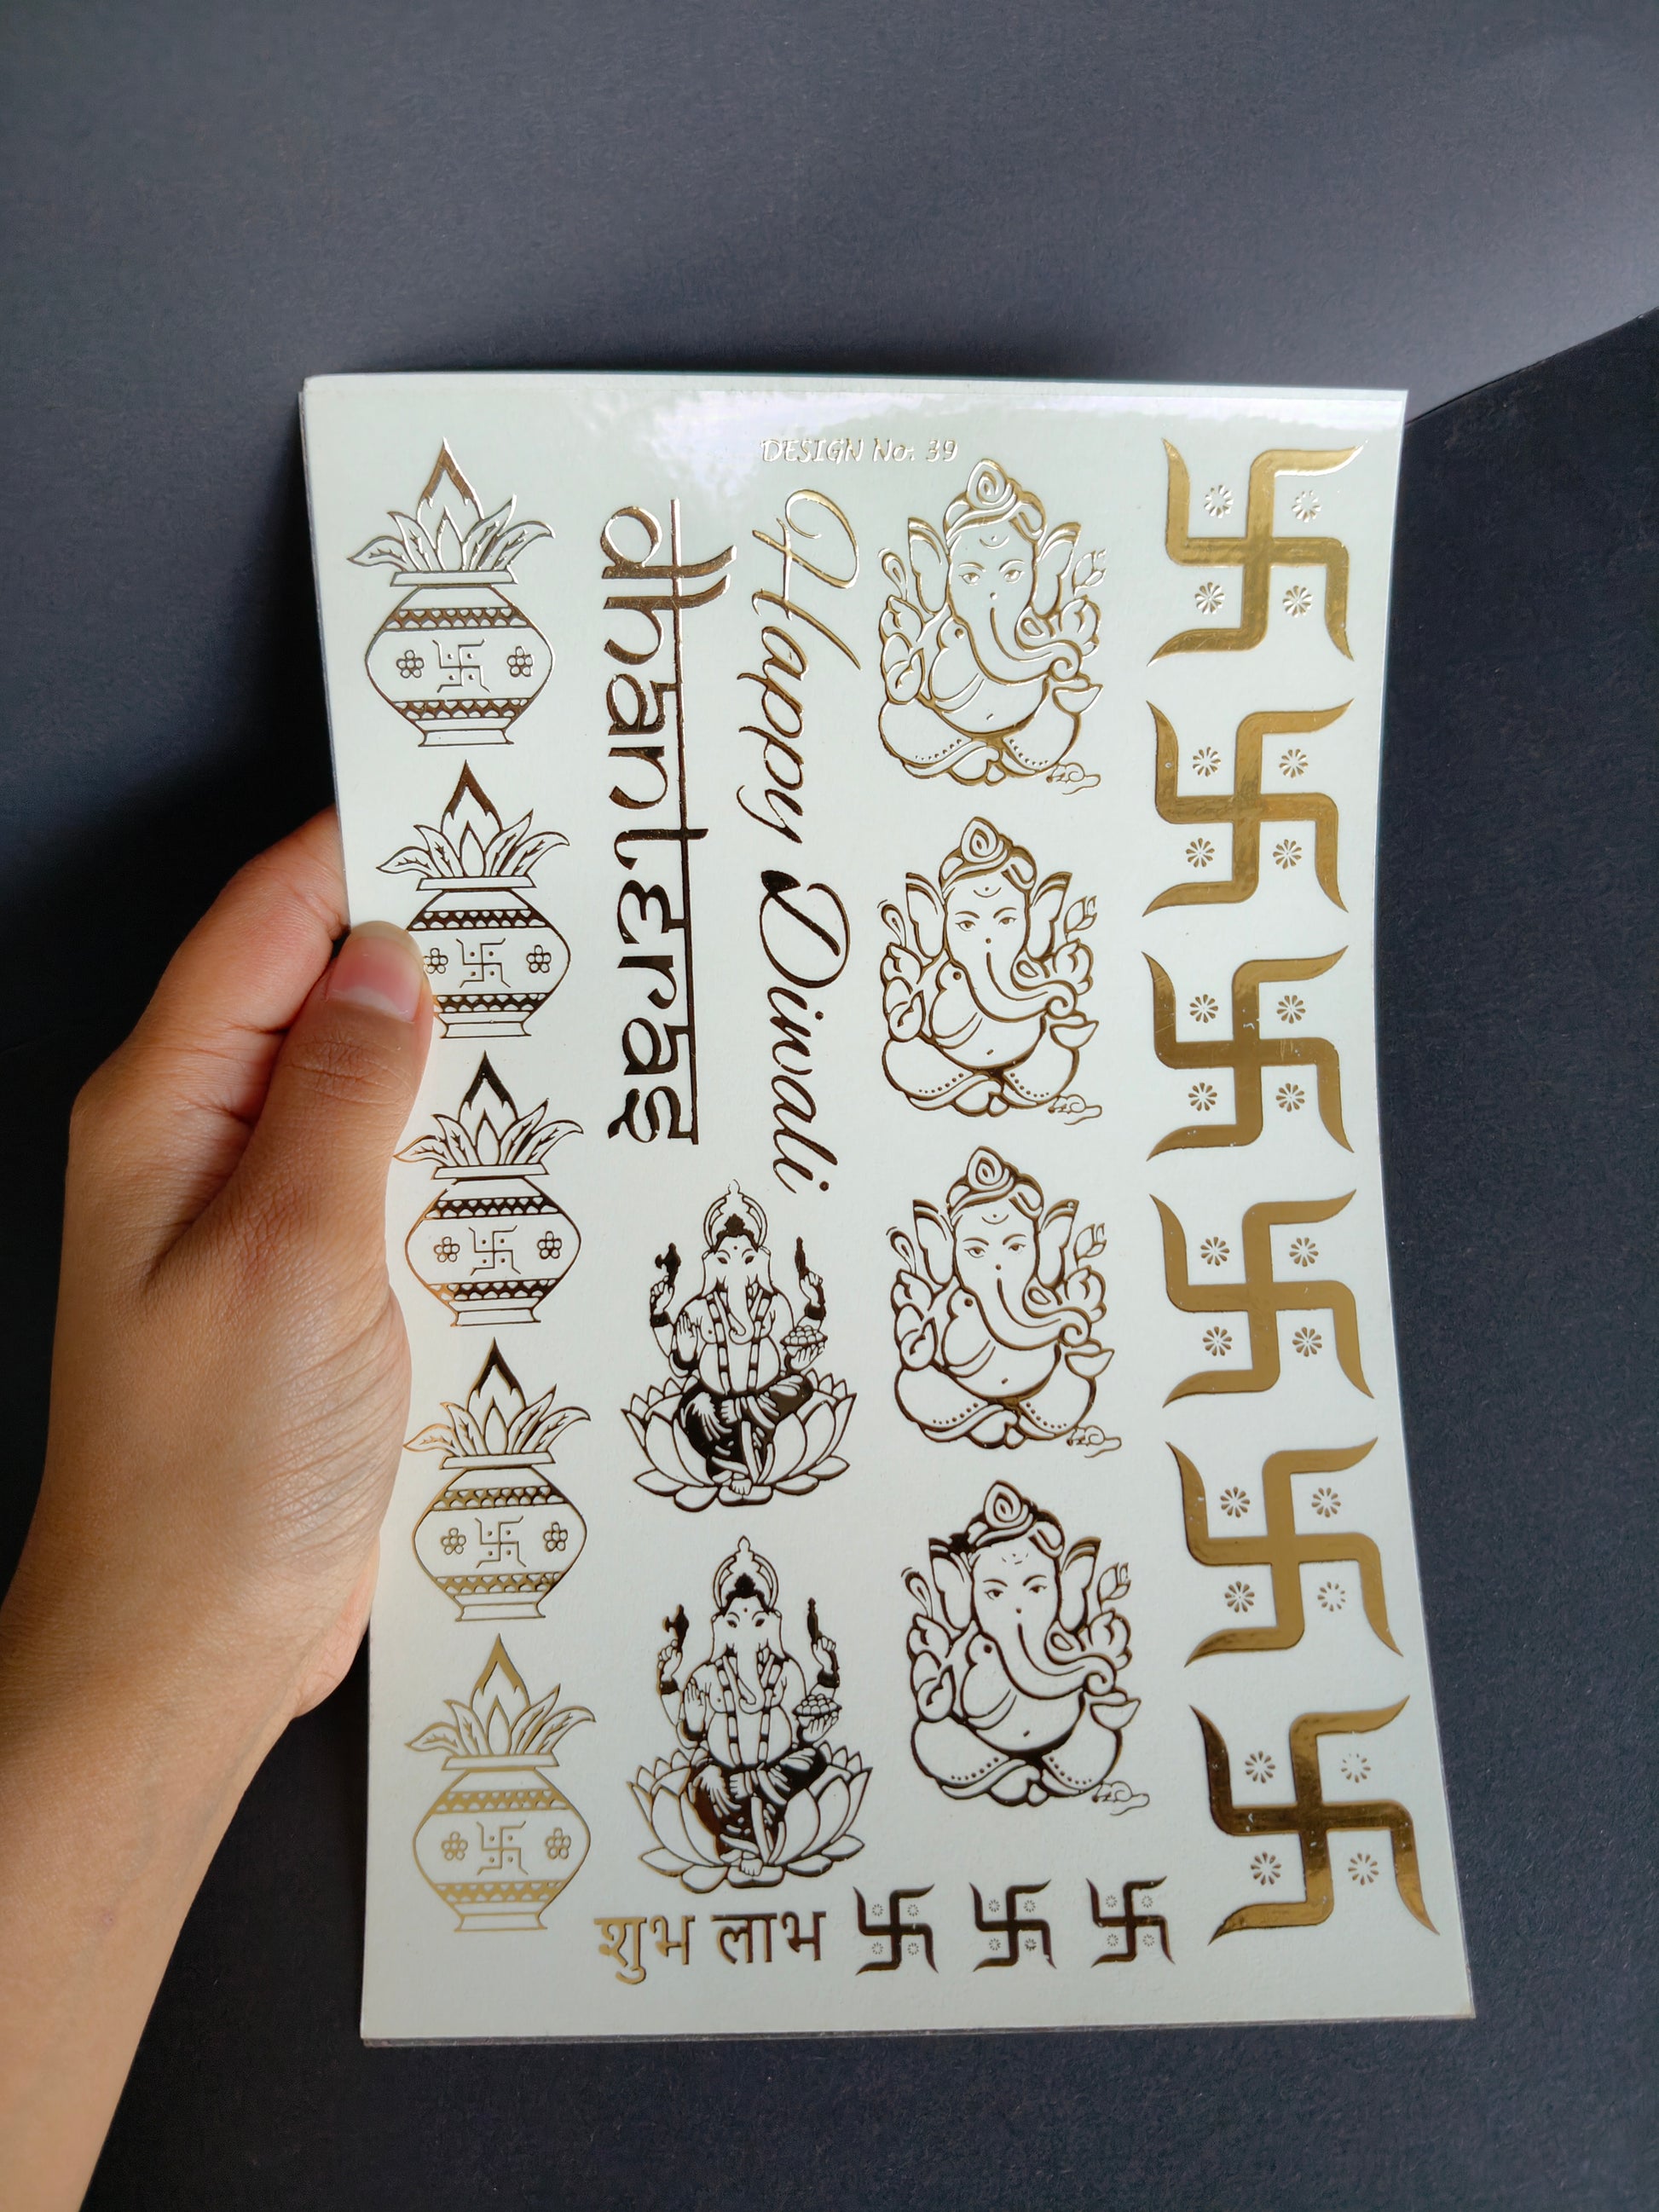 DESIGN No. 39
Happy Diwali
dhanteras
शुभ लाभ